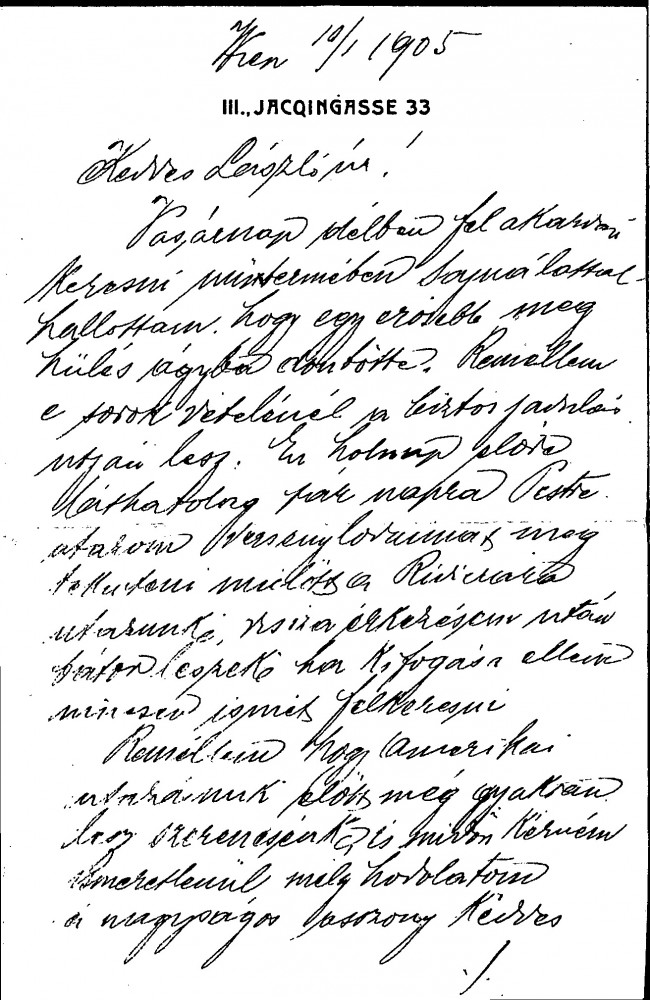 Wien 10/I 1905
III., JACQINGASSE 33
Kedves László úr!
Vasárnap délben fel akartam
keresni műtermében sajnálattal
hallottam, hogy egy erősebb meg
hülés ágyba döntötte. Remélem
e sorok vételénél a biztos javulás
utján lesz. Én holnap előre
láthatolag pár napra Pestre
utazom versenylovaimat meg
tekinteni mielőtt a Rivierára
utazunk, visszaérkezésem után
bátor leszek ha kifogása ellene
nincsen ismét felkeresni
Remélem hogy Amerikai
utazásuk előtt még gyakran
lesz szerencsénk, és midőn kérném
ismeretlenül mély hodolatom
a nagyságos asszony kedves
./.